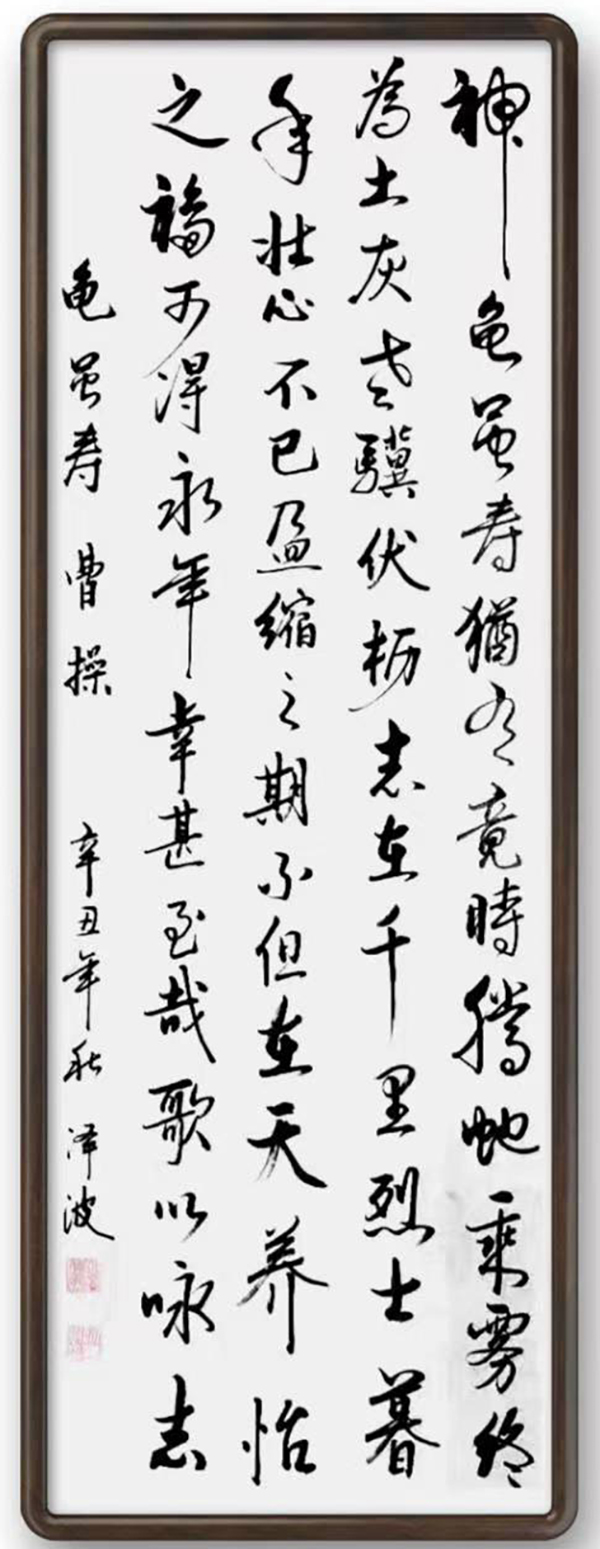 神龟虽寿猶有竟時騰虵乘雾终
為土灰老驥伏枥志在千里烈士暮
年壮心不已盈缩之期不但在天养怡
之福可得永年幸甚至哉歌以咏志
龟虽寿 曹操 辛丑年秋 泽波